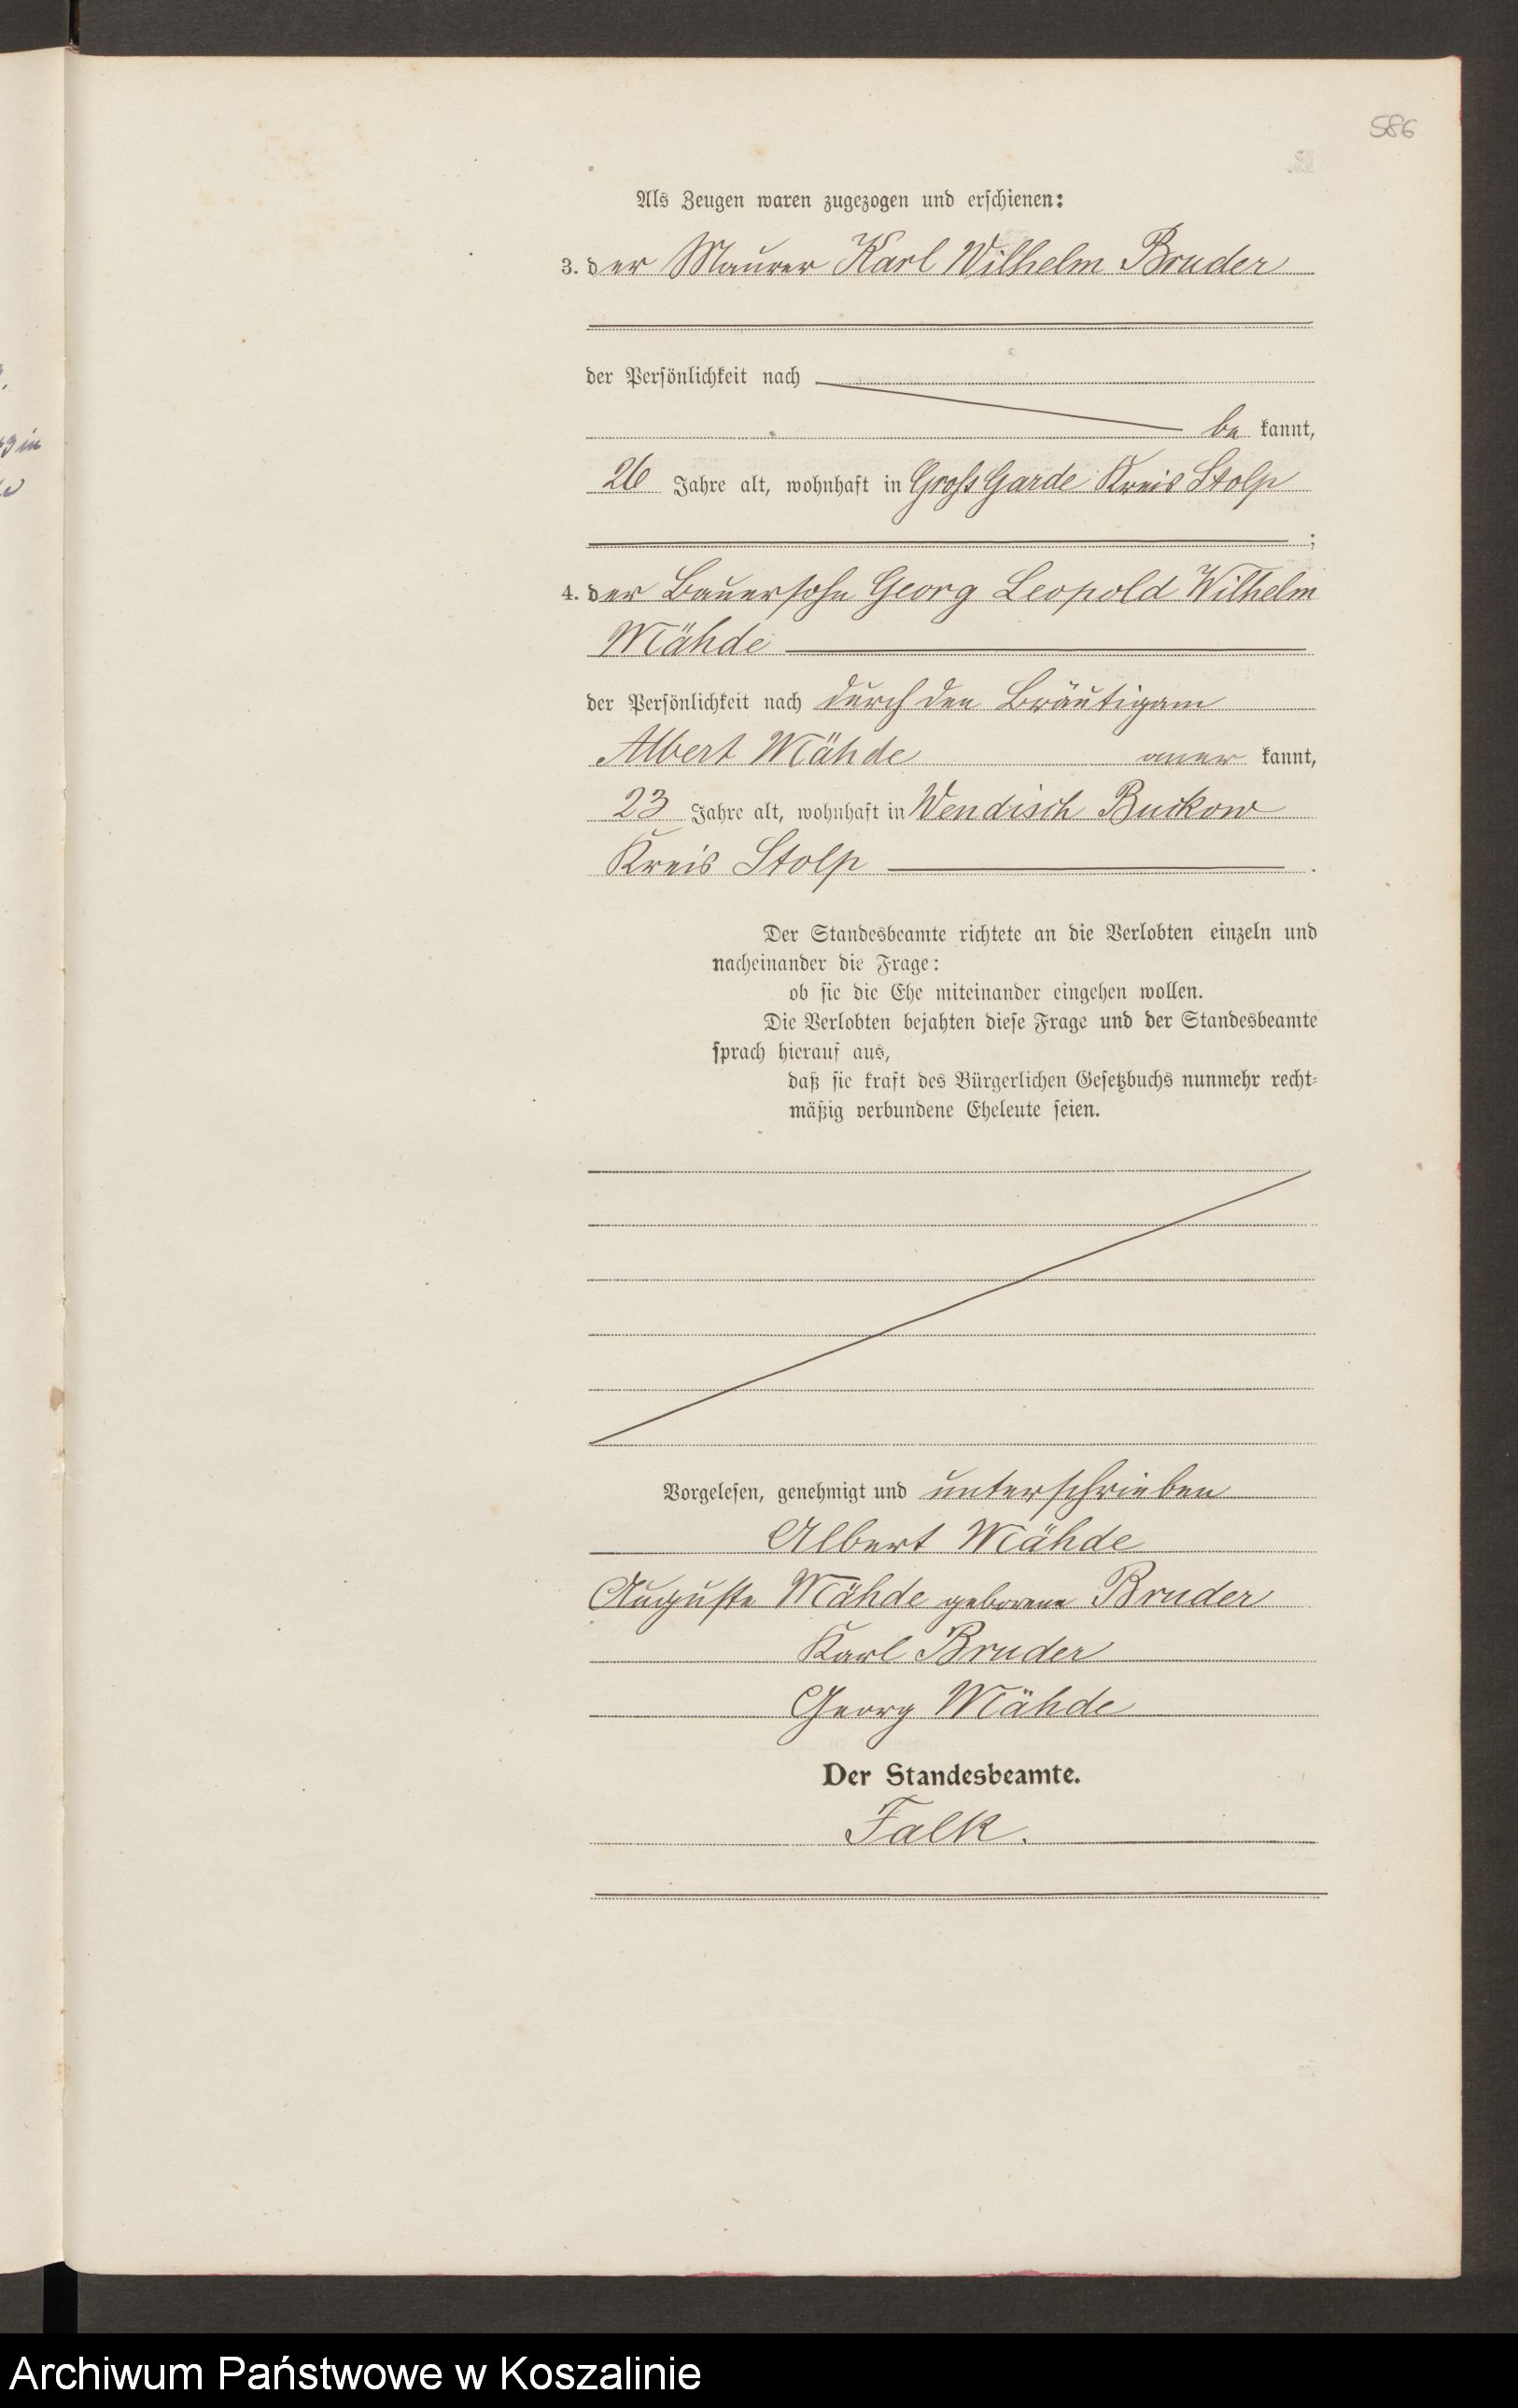 586
Als Zeugen waren zugezogen und erschienen:
3. der Maurer Karl Wilhelm Bruder
der Persönlichkeit nach
be kannt,
26 Jahre alt, wohnhaft in Groß Garde Kreis Stolp
;
4. der Bauersohn Georg Leopold Wilhelm
Mähde
der Persönlichkeit nach durch den Bräutigam
Albert Mähde aner kannt,
23 Jahre alt, wohnhaft in Wendisch Buckow
Kreis Stolp .
Der Standesbeamte richtete an die Verlobten einzeln und
nacheinander die Frage:
ob sie die Ehe miteinander eingehen wollen.
Die Verlobten bejahten diese Frage und der Standesbeamte
sprach hierauf aus,
daß sie kraft des Bürgerlichen Gesetzbuchs nunmehr recht-
mäßig verbundene Eheleute seien.
Vorgelesen, genehmigt und unterschrieben
Albert Mähde
Auguste Mähde geborene Bruder
Karl Bruder
Georg Mähde
Der Standesbeamte.
Falk.
Archiwum Państwowe w Koszalinie